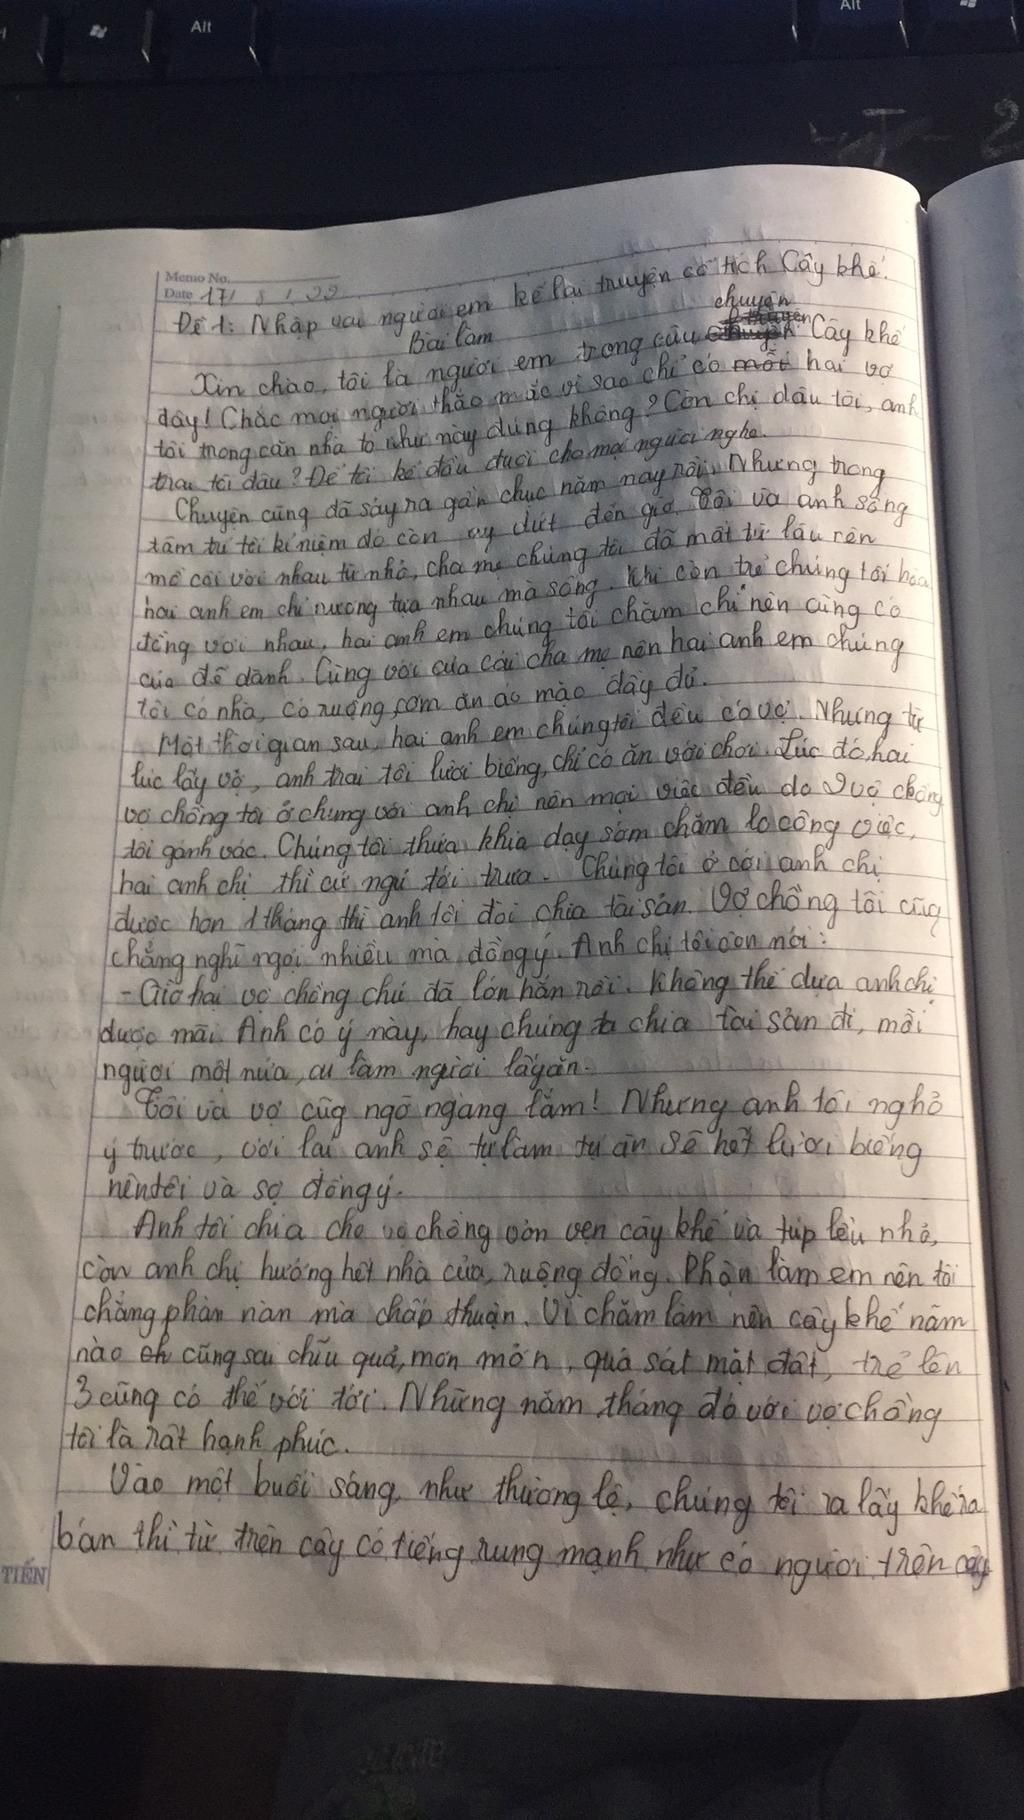 Alt
Alt
Memo No.
Date 17 / 8 / 22
Đề 1: Nhập vai người em kể lại truyện cổ tích Cây khế.
Bài làm
chuyện
Xin chào, tôi là người em trong câu Cây khế
đây! Chắc mọi người thắc mắc vì sao chỉ có một hai vợ
tôi trong căn nhà to như này đúng không? Còn chị dâu tôi, anh
trai tôi đâu? Để tôi kể đầu đuôi cho mọi người nghe.
Chuyện cũng đã sảy ra gần chục năm nay rồi. Nhưng trong
tâm tư tôi kỉ niệm đó còn day dứt đến giờ. Tôi và anh sống
mồ côi với nhau từ nhỏ, cha mẹ chúng tôi đã mất từ lâu nên
hai anh em chỉ nương tựa nhau mà sống. Khi còn trẻ chúng tôi hòa
đồng với nhau, hai anh em chúng tôi chăm chỉ nên cũng có
của để dành. Cùng với của cải cha mẹ nên hai anh em chúng
tôi có nhà, có ruộng, cơm ăn áo mặc đầy đủ.
Một thời gian sau, hai anh em chúng tôi đều có vợ. Nhưng từ
lúc lấy vợ, anh trai tôi lười biếng, chỉ có ăn với chơi. Lúc đó, hai
vợ chồng tôi ở chung với anh chị nên mọi việc đều do 2 vợ chồng
tôi gánh vác. Chúng tôi thức khuya dạy sớm chăm lo công việc,
hai anh chị thì cứ ngủ tới trưa. Chúng tôi ở với anh chị
được hơn 1 tháng thì anh tôi đòi chia tài sản. Vợ chồng tôi cũg
chẳng nghĩ ngợi nhiều mà đồng ý. Anh chị tôi còn nói:
- Giờ hai vợ chồng chú đã lớn hẳn rồi. Không thể dựa anh chị
được mãi. Anh có ý này, hay chúng ta chia tài sản đi, mỗi
người một nửa, ai làm người lấy ăn.
Tôi và vợ cũg ngỡ ngàng lắm! Nhưng anh tôi nghỏ
ý trước, với lại anh sẽ tự làm tự ăn sẽ hết lười biếng
nên tôi và sợ đồng ý.
Anh tôi chia cho vợ chồng vỏn vẹn cây khế và túp lều nhỏ,
còn anh chị hưởng hết nhà cửa, ruộng đồng. Phận làm em nên tôi
chẳng phàn nàn mà chấp thuận. Vì chăm làm nên cây khế năm
nào ch cũng sai chĩu quả, mơn mởn, quả sát mặt đất, trẻ lên
3 cũng có thể với tới. Những năm tháng đó với vợ chồng
tôi là rất hạnh phúc.
Vào một buổi sáng, như thường lệ, chúng tôi ra lấy khế ra
bán thì từ trên cây có tiếng rung mạnh như có người trên cây
TIẾN